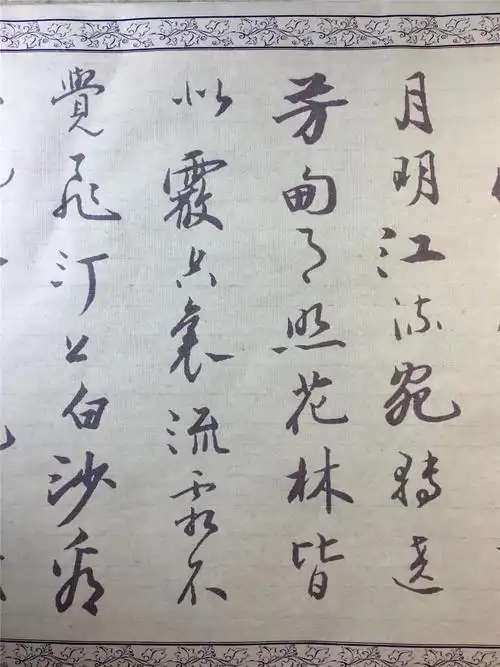 月明江流宛轉遶
芳甸月照花林皆
似霰空裏流霜不
覺飛汀上白沙看